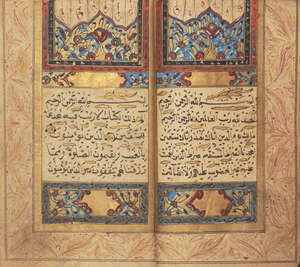 بسم الله الرحمن الرحيم
الحمد لله رب العالمين الرحمن الرحيم
ملك يوم الدين اياك نعبد واياك نستعين
اهدنا الصراط المستقيم صراط الذين انعمت
عليهم غير المغضوب عليهم ولا الضالين
بسم الله الرحمن الرحيم
الم ذلك الكتاب لا ريب فيه هدى
للمتقين الذين يؤمنون
بالغيب ويقيمون الصلوة ومما
رزقناهم ينفقون والذين يؤمنون